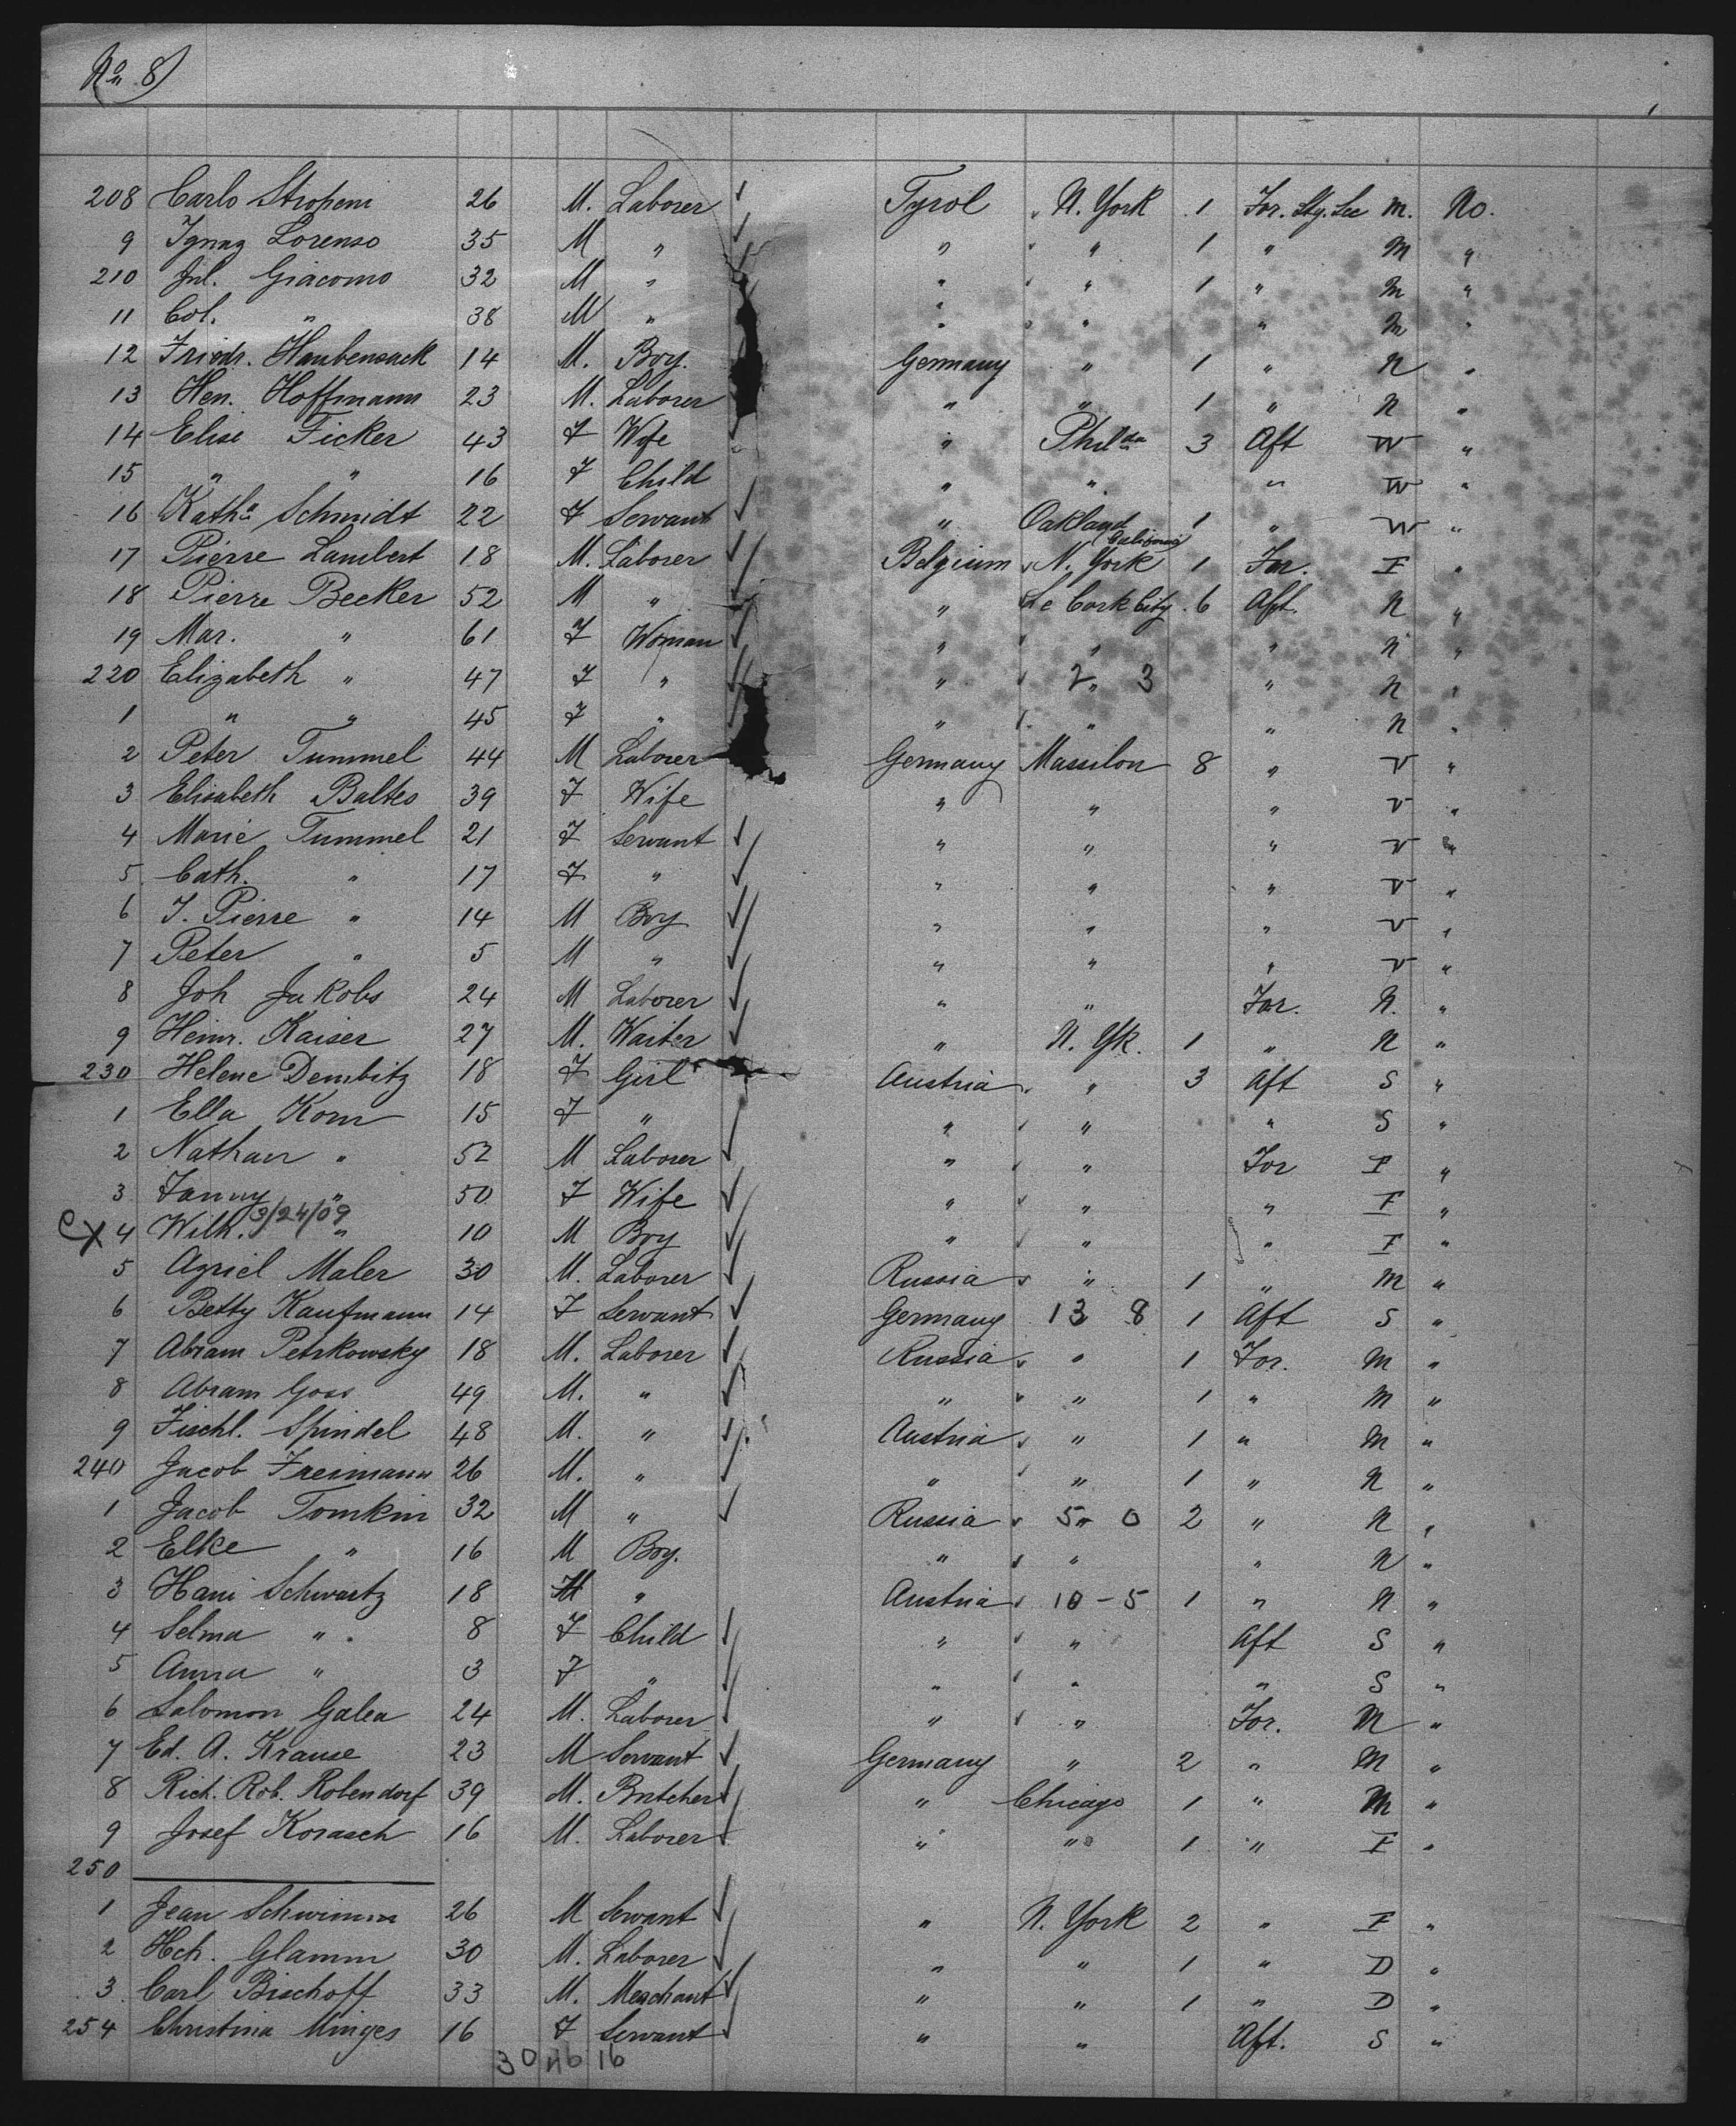 No 8)
208 Carlo Stroheni 26 M. Laborer ✓ Tyrol ✓ N. York 1 For. Stg. Sec M. No.
9 Ignaz Lorenso 35 M " ✓ " " 1 " M "
210 Jul. Giacomo 32 M " " " 1 " M "
11 Col. " 38 M " " " " M "
12 Friedr. Haubensack 14 M. Boy. Germany " 1 " N "
13 Hen. Hoffmann 23 M. Laborer " " 1 " N "
14 Elise Ficker 43 F Wife " Philda 3 Aft W "
15 " " 16 F Child " " " W "
16 Katha Schmidt 22 F Servant ✓ " Oakland California 1 " W "
17 Pierre Lambert 18 M. Laborer ✓ Belgium ✓ N. York 1 For. F "
18 Pierre Becker 52 M " ✓ " Le Cork City 6 Aft. N "
19 Mar. " 61 F Woman ✓ " " " N "
220 Elizabeth " 47 F " ✓ " 2 " 3 " N "
1 " " 45 F " ✓ " " " N "
2 Peter Tummel 44 M Laborer Germany Massilon 8 " V "
3 Elisabeth Baltes 39 F Wife " " " V "
4 Marie Tummel 21 F Servant ✓ " " " V "
5 Cath. " 17 F " ✓ " " " V "
6 J. Pierre " 14 M Boy ✓ " " " V "
7 Peter " 5 M " ✓ " " " V "
8 Joh Jakobs 24 M Laborer ✓ " " For. N. "
9 Heinr. Kaiser 27 M. Waiter ✓ " N. Yk. 1 " N "
230 Helene Dembitz 18 F Girl Austria ✓ " 3 Aft S "
1 Ella Korn 15 F " ✓ " ✓ " " S "
2 Nathan " 52 M Laborer ✓ " ✓ " For F "
3 Fanny " 50 F Wife ✓ " ✓ " " F "
ex 4 Wilh. 3/24/09 " 10 M Boy ✓ " ✓ " " F "
5 Agriel Maler 30 M. Laborer ✓ Russia ✓ " 1 " M "
6 Betty Kaufmann 14 F Servant ✓ Germany 13 8 1 Aft S "
7 Abram Petrkowsky 18 M. Laborer ✓ Russia ✓ " 1 For. M "
8 Abram Goss 49 M. " ✓ " ✓ " 1 " M "
9 Fischl. Spindel 48 M. " ✓ Austria ✓ " 1 " M "
240 Jacob Freimann 26 M. " ✓ " ✓ " 1 " N "
1 Jacob Tomkin 32 M " ✓ Russia ✓ 5 " 0 2 " N "
2 Elke " 16 M Boy. " ✓ " " N "
3 Hani Schwartz 18 M " Austria ✓ 10 - 5 1 " N "
4 Selma " 8 F Child ✓ " ✓ " Aft S "
5 Anna " 3 F " ✓ " ✓ " " S "
6 Salomon Galea 24 M. Laborer ✓ " ✓ " For. M "
7 Ed. A. Krause 23 M Servant ✓ Germany " 2 " M "
8 Rich. Rob. Robendorf 39 M. Butcher ✓ " Chicago 1 " M "
9 Josef Korasch 16 M. Laborer ✓ " " 1 " F "
250
1 Jean Schwimm 26 M Servant ✓ " N. York 2 " F "
2 Hch. Glamm 30 M. Laborer ✓ " " 1 " D "
3 Carl Bischoff 33 M. Merchant ✓ " " 1 " D "
254 Christina Minges 16 F Servant ✓ " " Aft. S "
30 46 16